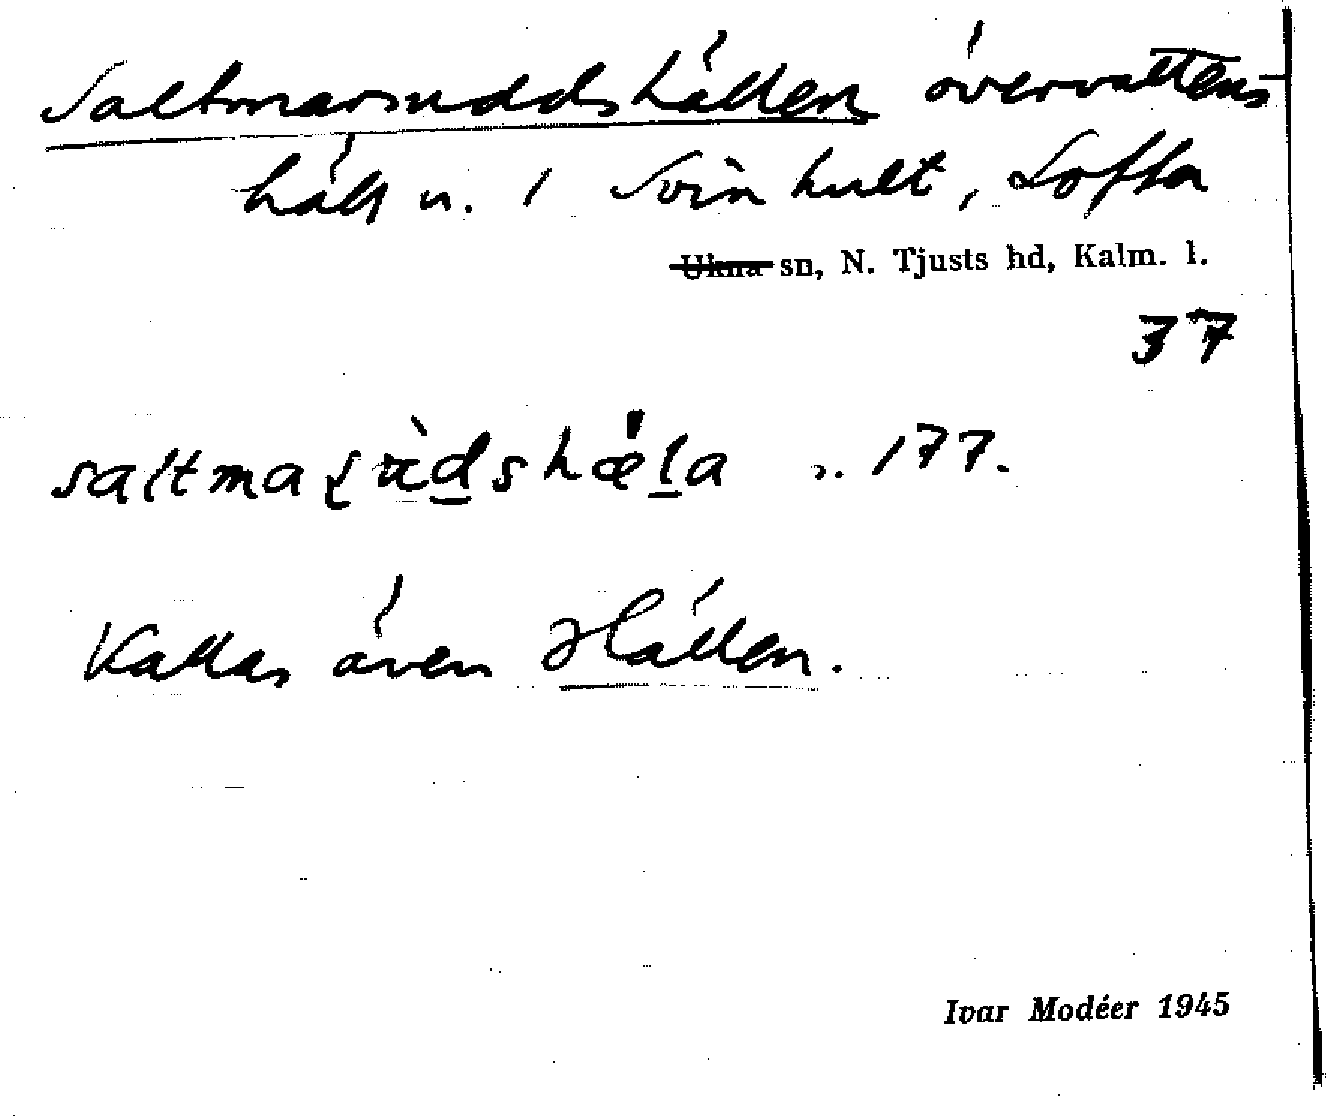 Saltmarsuddshällen övervattens-
häll u. 1 Svinhult, Lofta
Ukna sn, N. Tjusts hd, Kalm. l.
37
177.
Kallas även Hällen.
Ivar Modéer 1945